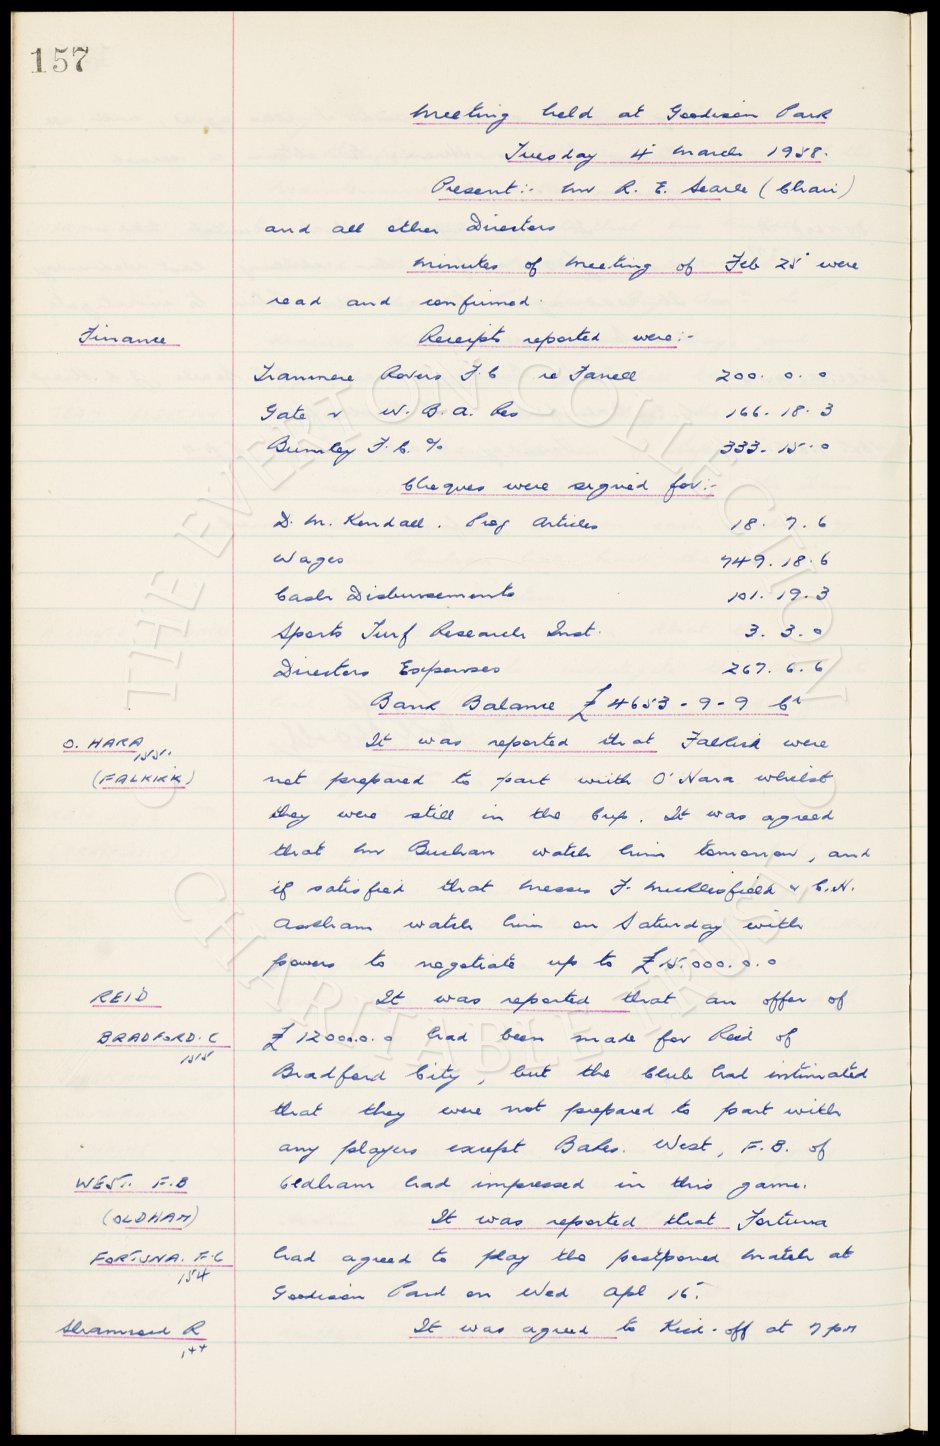 157
Meeting held at Goodison Park
Tuesday 4th March 1958.
Present:- Mr R. E. Searle (Chair)
and all other Directors
Minutes of Meeting of Feb 25th were
read and confirmed.
Finance
Receipts reported were:-
Tranmere Rovers F.C re Farrell 200. 0. 0
Gate v W. B. A. Res 166. 18. 3
Burnley F.C. % 333. 15. 0
Cheques were signed for:-
D. M. Kendall. Prog Articles 18. 7. 6
Wages 749. 18. 6
Cash Disbursements 101. 19. 3
Sports Turf Research Inst. 3. 3. 0
Directors Expenses 267. 6. 6
Bank Balance £4653-9-9 Cr
O. HARA
155.
(FALKIRK)
It was reported that Falkirk were
not prepared to part with O'Hara whilst
they were still in the Cup. It was agreed
that Mr Buchan watch him tomorrow, and
if satisfied that Messrs F. Micklesfield & C.H.
Askham watch him on Saturday with
powers to negotiate up to £15.000.0.0
REID
BRADFORD. C
155
It was reported that an offer of
£12000.0.0 had been made for Reid of
Bradford City, but the Club had intimated
that they were not prepared to part with
any players except Bakes. West, F.B. of
Oldham had impressed in this game.
WEST. F.B
(OLDHAM)
FORTUNA. F.C
154
It was reported that Fortuna
had agreed to play the postponed match at
Goodison Park on Wed Apl 16th.
Shamrock R
144
It was agreed to Kick-off at 7 pm
THE EVERTON COLLECTION
CHARITABLE TRUST